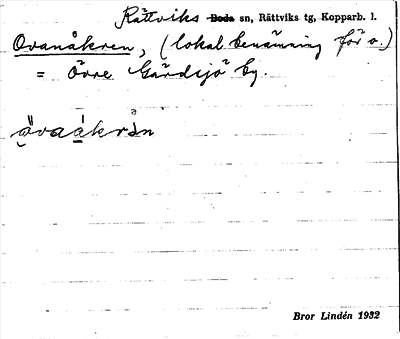 Rättviks Boda sn, Rättviks tg, Kopparb. l.
Ovanåkren, (lokal benämning för o.)
= Övre Gärdsjö by.
övaåkrån
Bror Lindén 1932